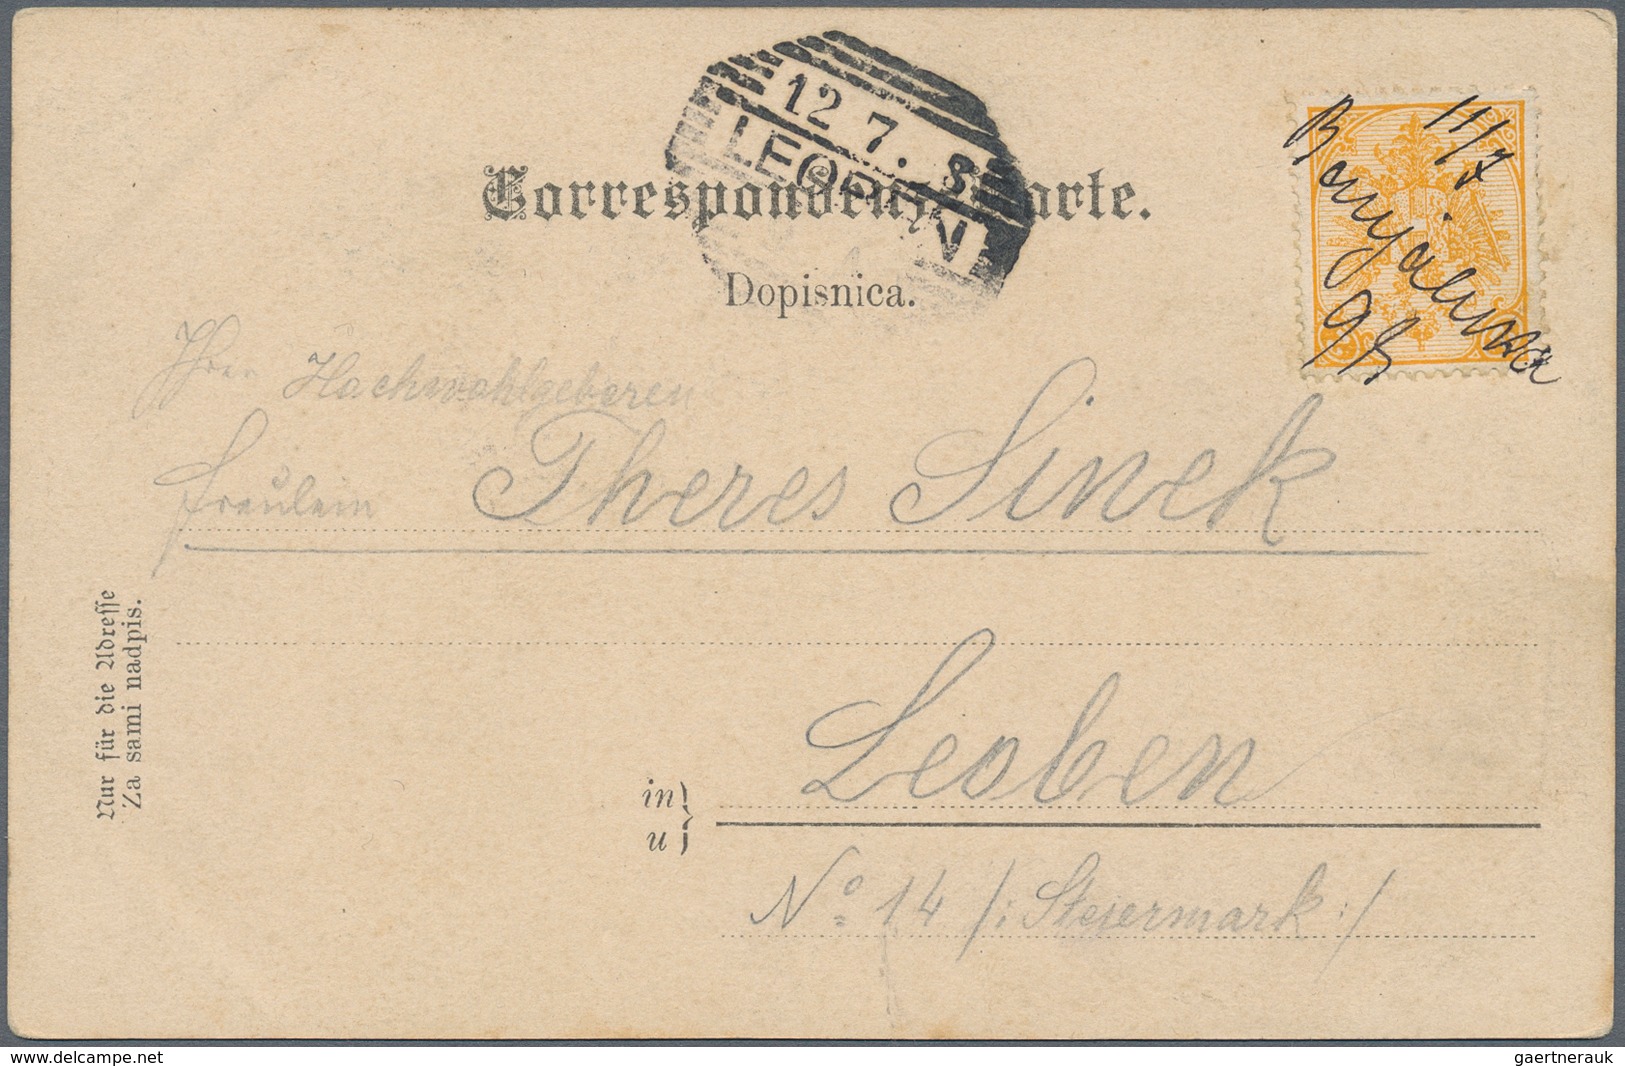 12 7. 8
LEOBEN
Correspondenz-Karte.
Dopisnica.
11/7
Banjaluka
98
Ihrer Hochwohlgeboren
Fräulein Theres Sinek
Nur für die Adresse
Za sami nadpis.
Leoben
in
u
No 14 /: Steiermark :/
www.delcampe.net
gaertnerauk